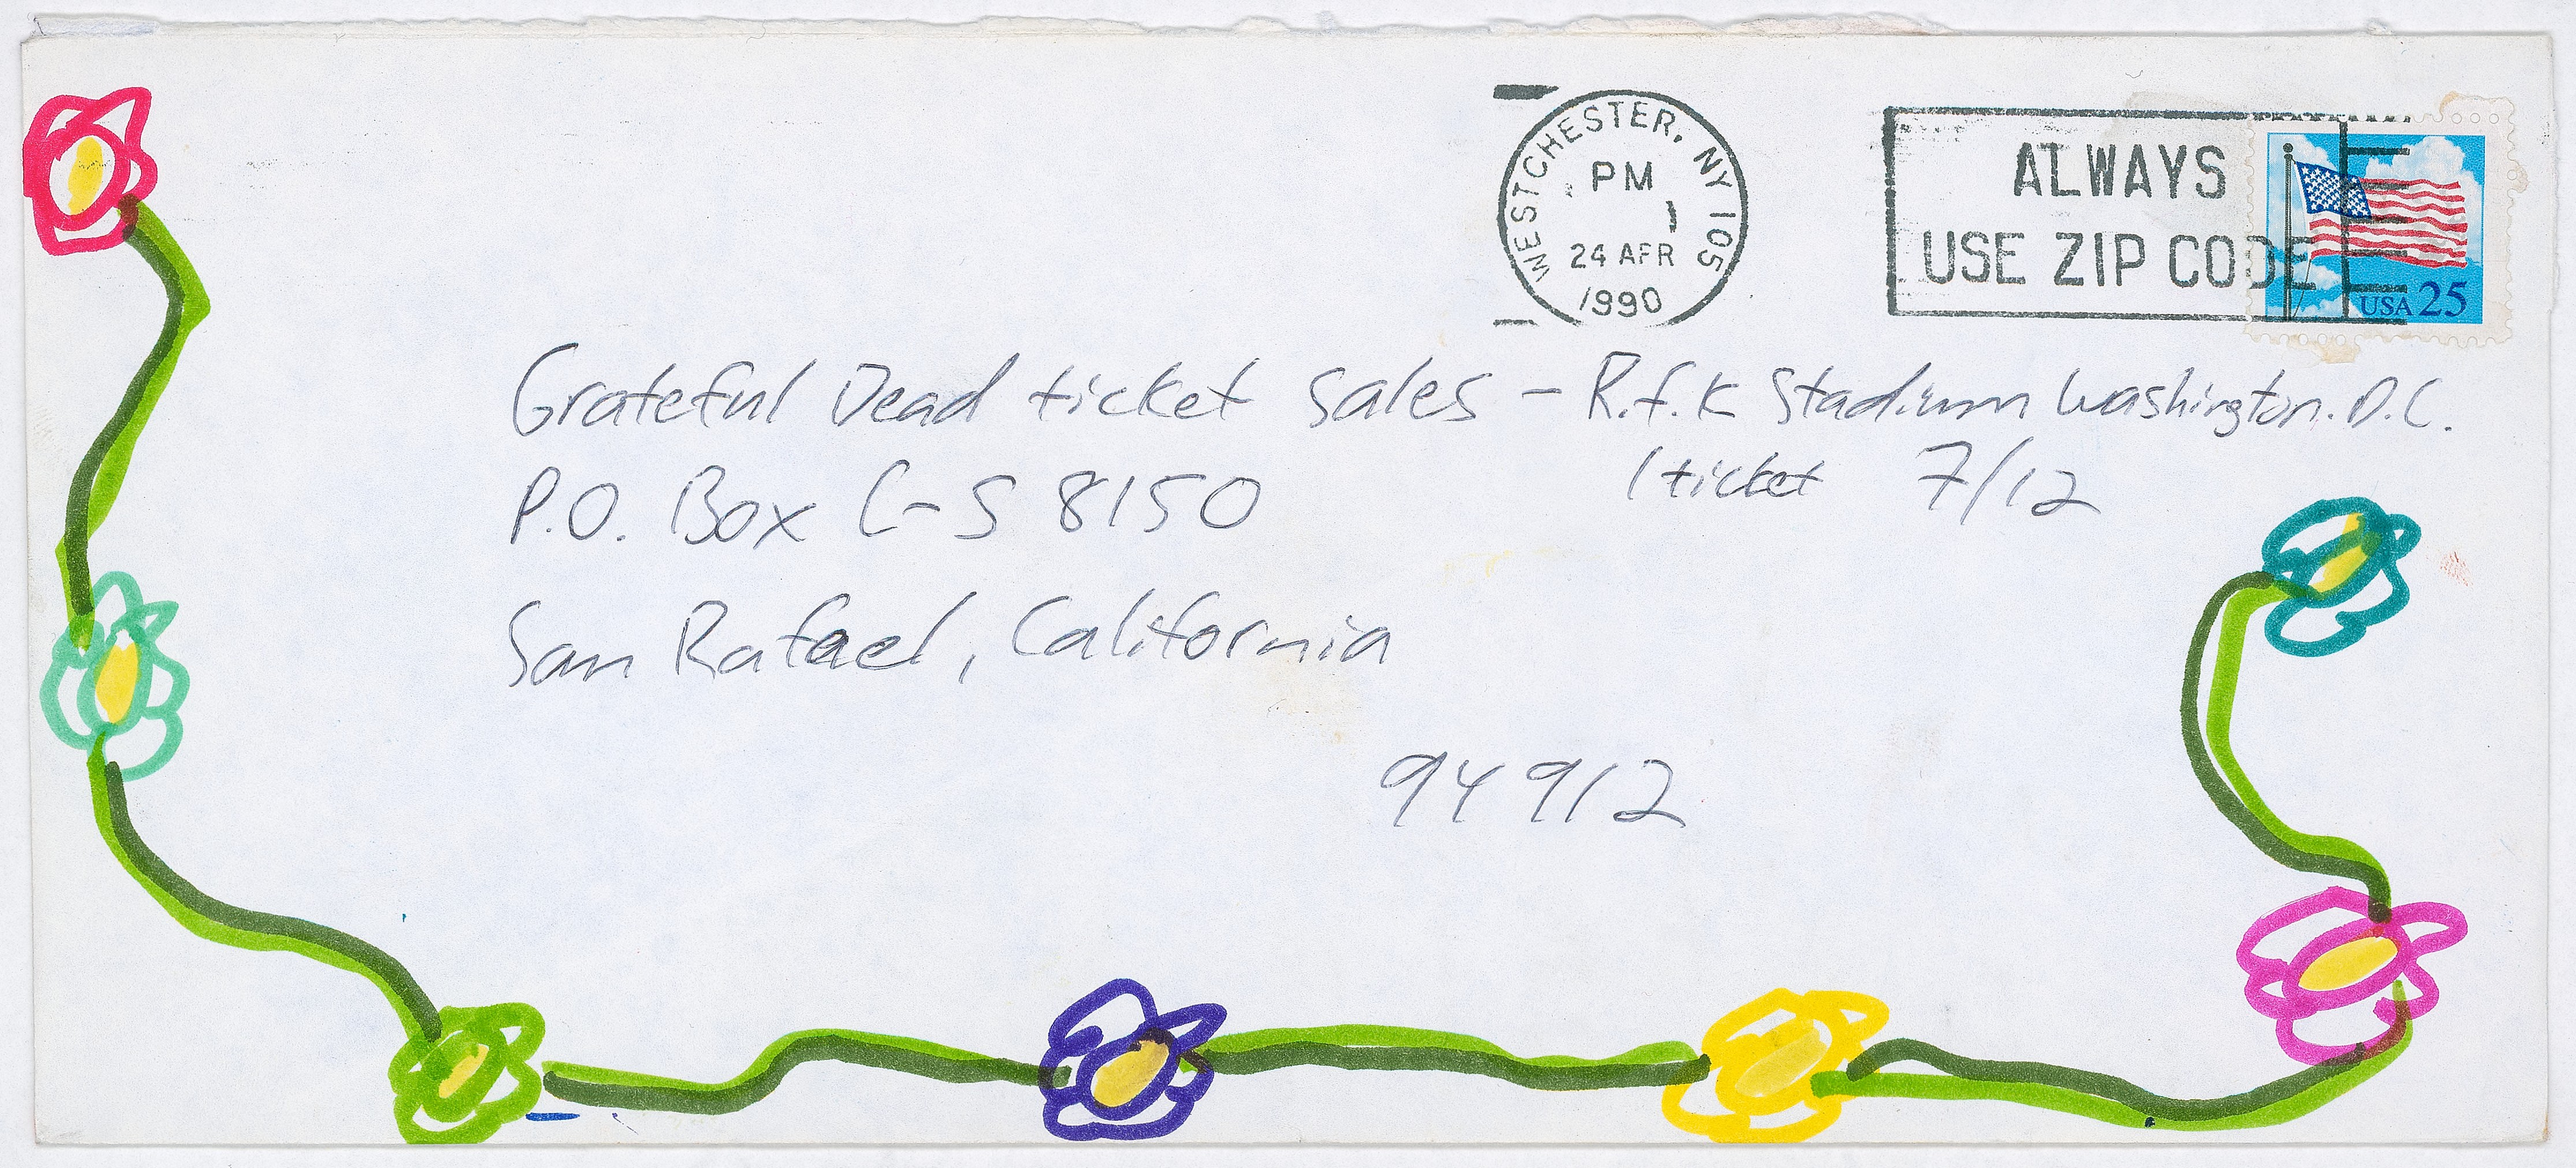 WESTCHESTER, NY 105
PM
24 APR
1990
ALWAYS
USE ZIP CODE
USA 25
Grateful Dead ticket sales - R.f.K Stadium Washington. D.C.
P.O. Box C-S 8150
1 ticket 7/12
San Rafael, California
94912